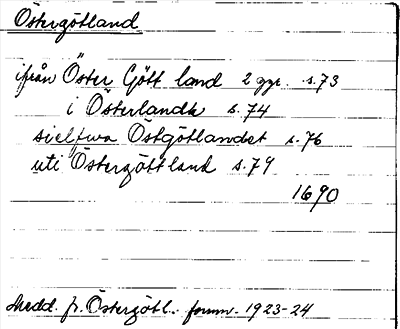 Östergötland
ifrån Öster Gött land 2 ggr. s.73
i Österlanda s.74
sielfwa Östgötlandet s.76
uti Östergöttland s.79
1690
Medd. fr. Östergötl. fornm. 1923-24